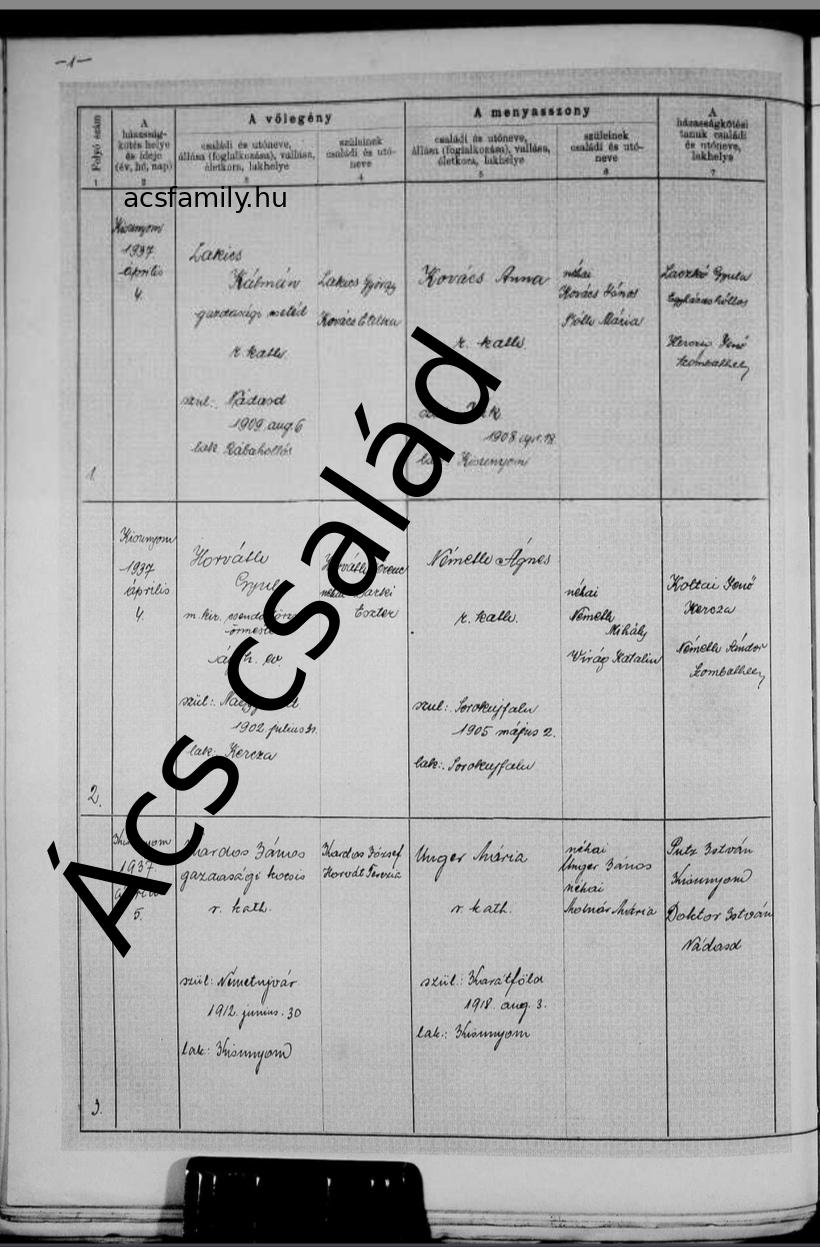 —1—
Folyó szám
A
házasság-
kötés helye
és ideje
(év, hó, nap)
A vőlegény
családi és utóneve,
állása (foglalkozása), vallása,
életkora, lakhelye
szüleinek
családi és utó-
neve
A menyasszony
családi és utóneve,
állása (foglalkozása), vallása,
életkora, lakhelye
szüleinek
családi és utó-
neve
A
házasságkötési
tanuk családi
és utóneve,
lakhelye
1
2
3
4
5
6
7
acsfamily.hu
Kisunyom
1937
április
4.
Lakics
Kálmán
gazdasági cseléd
r. kath.
szül: Nádasd
1909. aug. 6
lak: Rábahollós
Lakics György
Kovács Etelka
Kovács Anna
r. kath.
1908 ápr. 18.
Kisunyom
néhai
Kovács János
Mária
Laczkó Gyula
Egyházashollós
Jenő
Szombathely
1
Kisunyom
1937
április
4.
Horváth
m. kir.
szül:
1902. julius 31.
lak: Kercza
néhai
Eszter
Németh Ágnes
r. kath.
szül: Sorokujfalu
1905 május 2.
lak: Sorokujfalu
néhai
Németh
Mihály
Virág Katalin
Koltai Jenő
Kercza
Németh Sándor
Szombathely
2.
1937.
5.
Kardos János
gazdasági kocsis
r. kath.
szül: Németujvár
1912. junius. 30
lak: Kisunyom
Kardos József
Horvát Terézia
Unger Mária
r. kath.
szül: Karátföld
1918. aug. 3.
lak: Kisunyom
néhai
Unger János
néhai
Molnár Mária
Putz István
Kisunyom
Doktor István
Nádasd
3.
Ács család